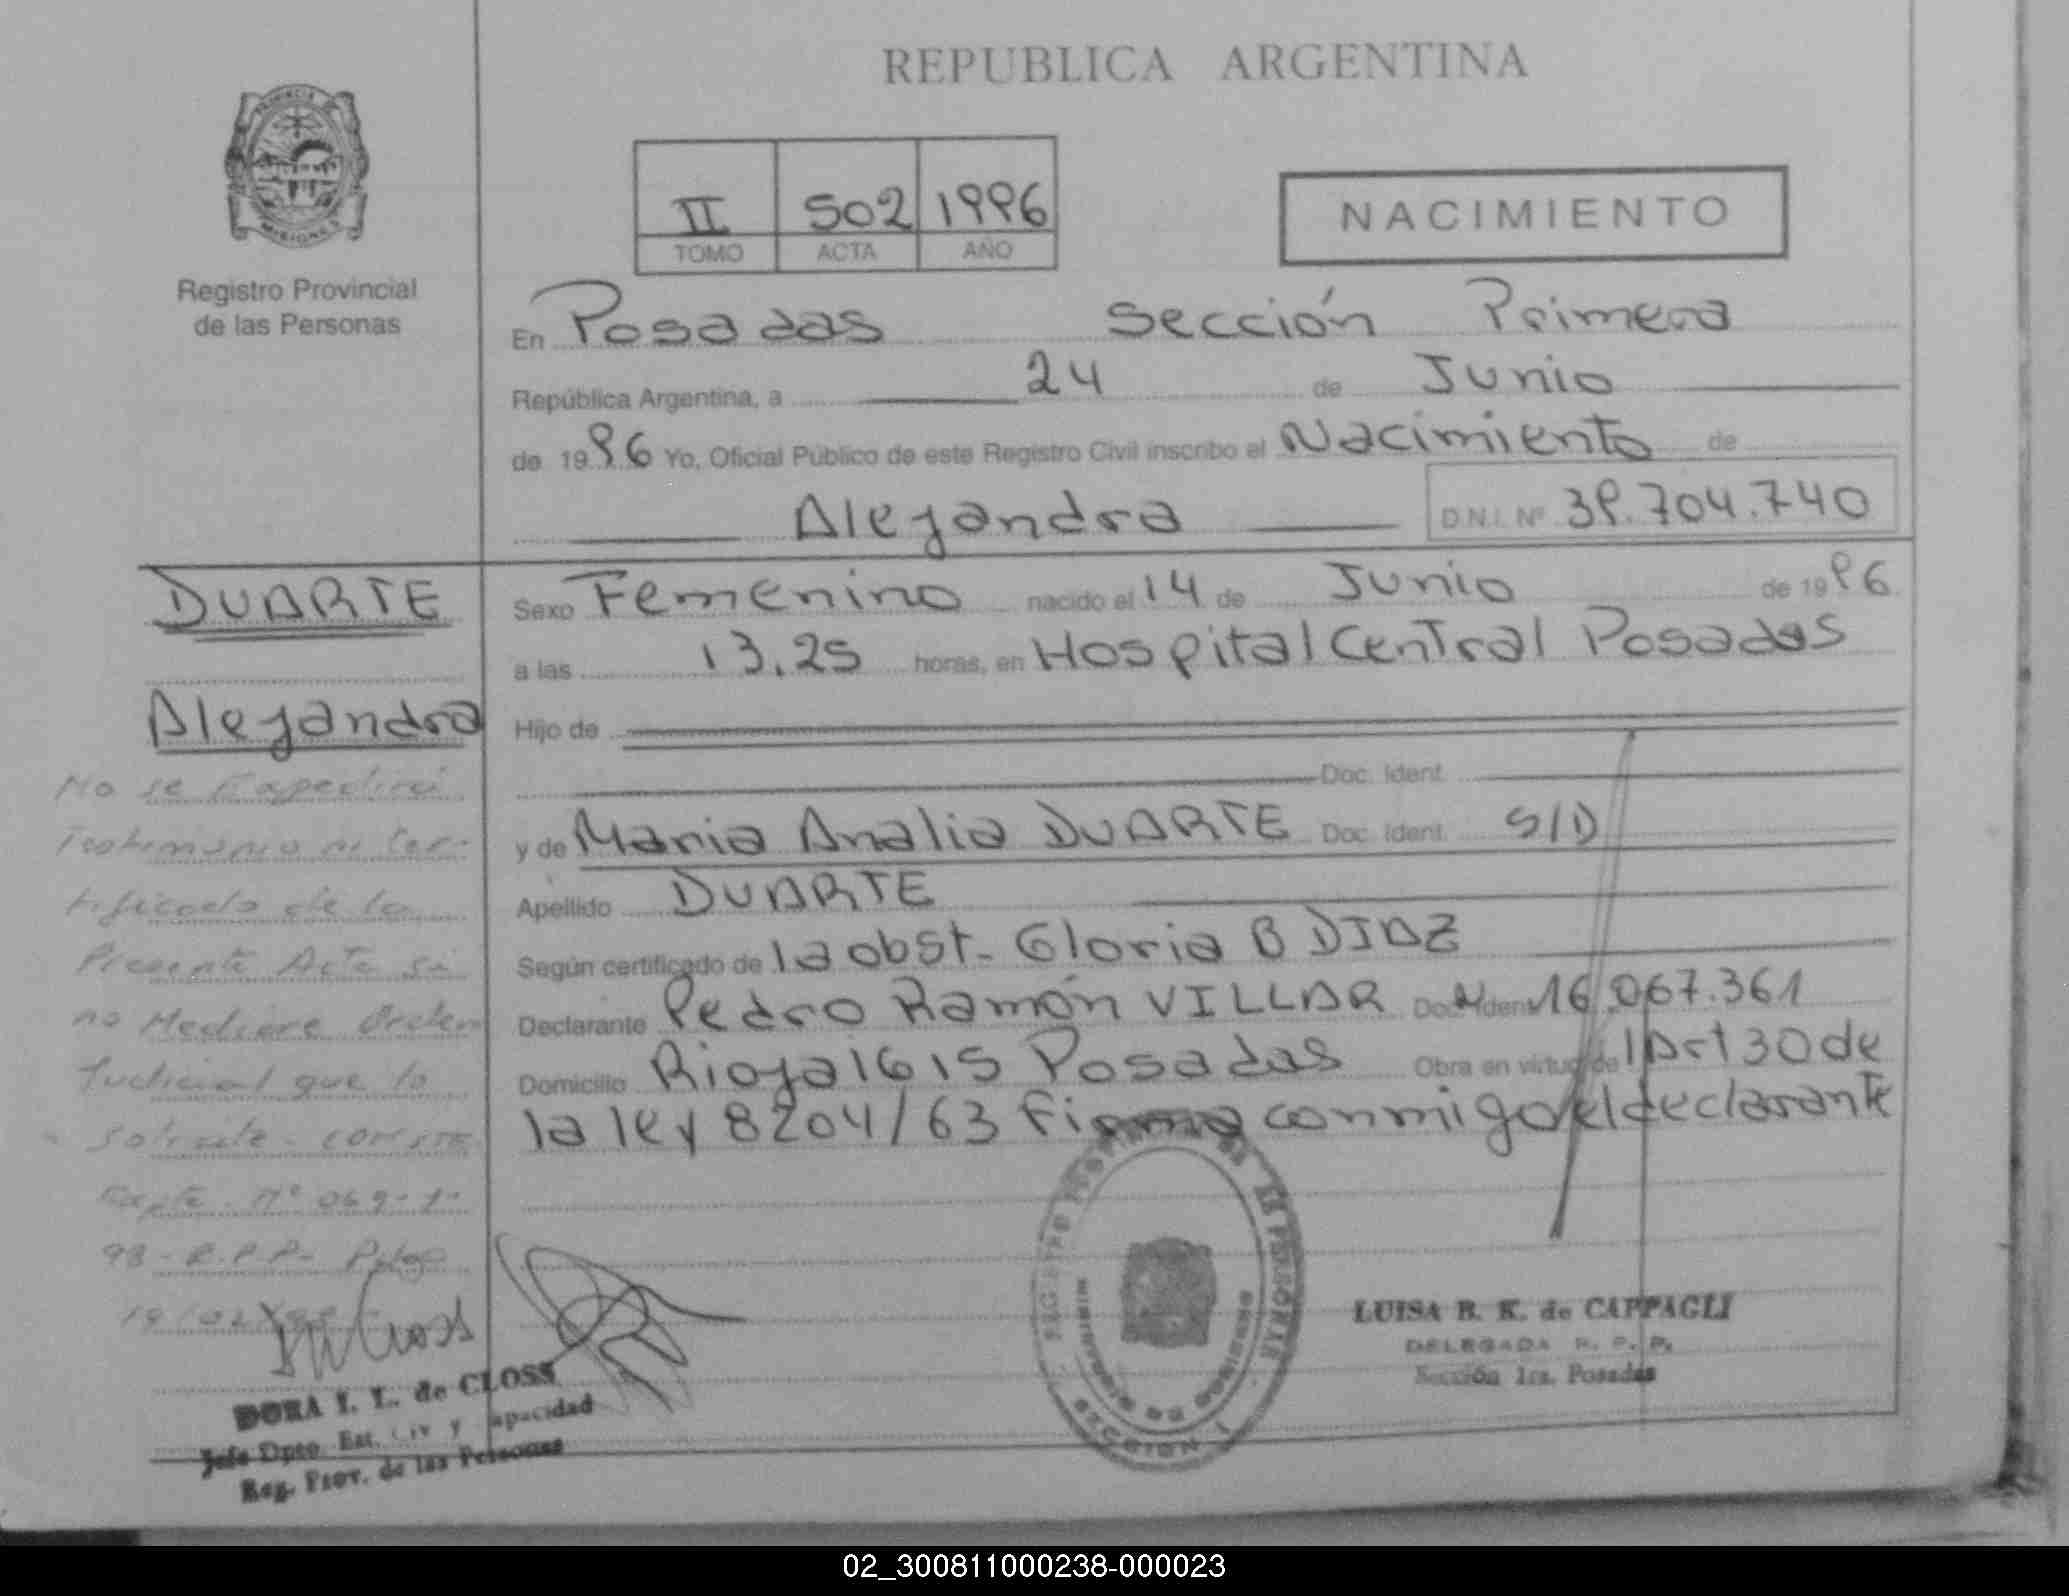 REPUBLICA ARGENTINA
PROVINCIA DE
MISIONES
Registro Provincial
de las Personas
II 502 1996
TOMO ACTA AÑO
NACIMIENTO
En Posadas Sección Primera
República Argentina, a 24 de Junio
de 1996 Yo, Oficial Público de este Registro Civil inscribo el Nacimiento de
Alejandra D.N.I. Nº 39.704.740
DUARTE
Alejandra
Sexo Femenino nacido el 14 de Junio de 1996
a las 13.25 horas, en Hospital Central Posadas
Hijo de
Doc. Ident.
y de Maria Analia DUARTE Doc. Ident. S/D
Apellido DUARTE
Según certificado de la obst. Gloria B DIAZ
Declarante Pedro Ramón VILLAR Doc. Ident. 16.067.361
Domicilio Rioja 1615 Posadas Obra en virtud de l Art 30 de
la ley 8204/63 firma conmigo el declarante
No se Expedirá
Testimonio ni Cer-
tificado de la
Presente Acta si
no Mediare Orden
Judicial que lo
solicite.
Expte. Nº 069-1-
98-R.P.P.
DORA I. L. de CLOSS
Jefe Dpto. Est. Civ y Capacidad
Reg. Prov. de las Personas
SECCION 1
LUISA B. K. de CAPPAGLI
DELEGADA R. P. P.
Sección 1ra. Posadas
02_300811000238-000023